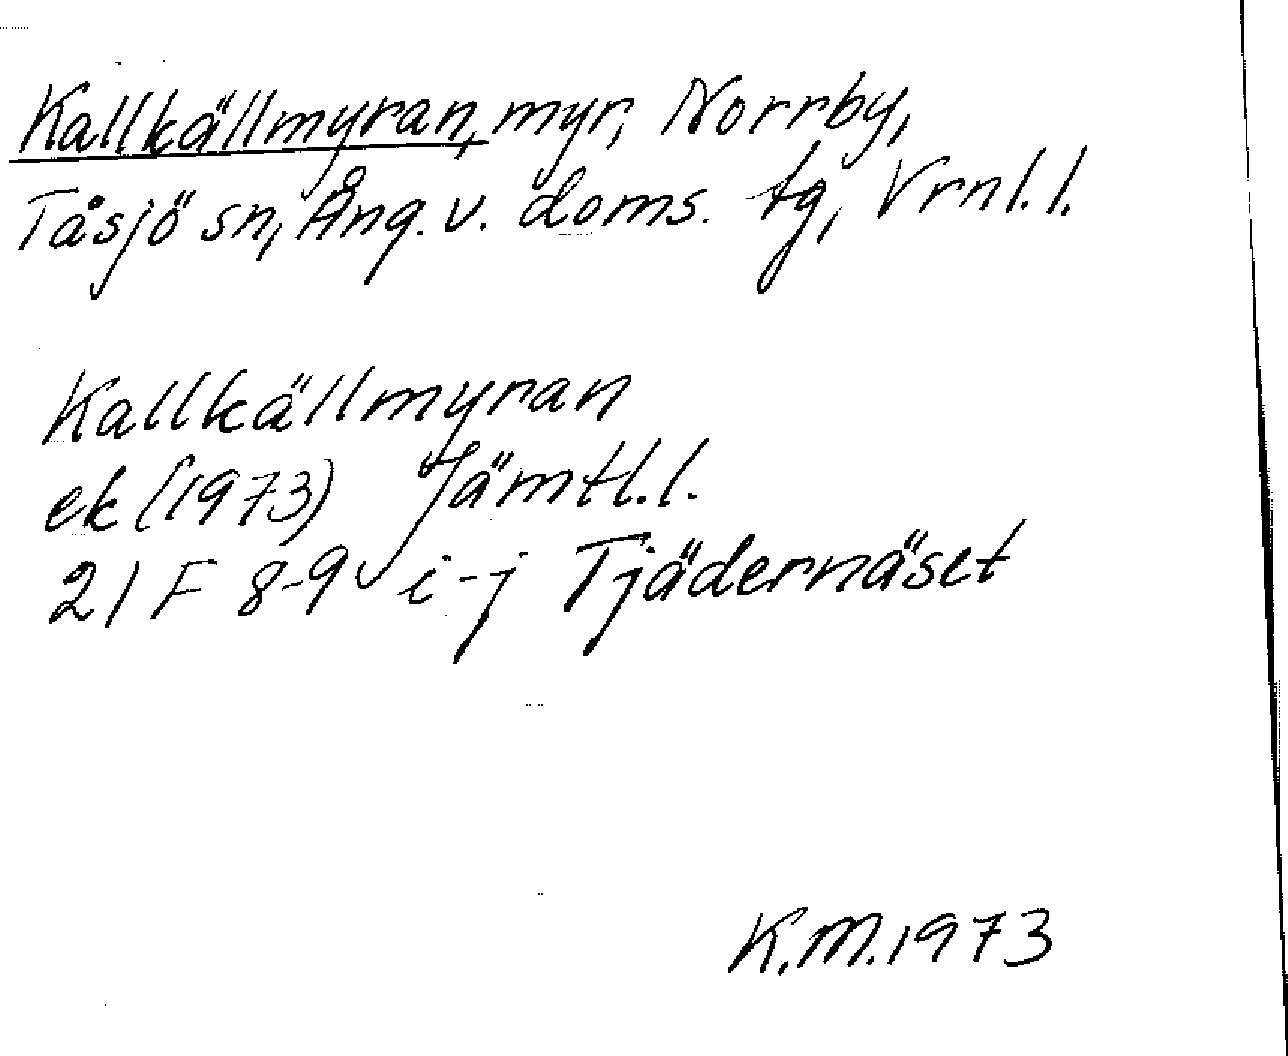 Kallkällmyran, myr, Norrby,
Tåsjö sn, Ång. v. doms. tg, Vrnl. l.
Kallkällmyran
ek (1973) Jämtl. l.
21 F 8-9 i-j Tjädernäset
K.M. 1973